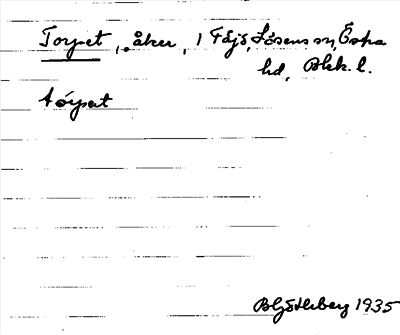 Torpet, åker, 1 Fäjö, Lösens sn, Östra
hd, Blek. l.
tórpat
B Götlberg 1935